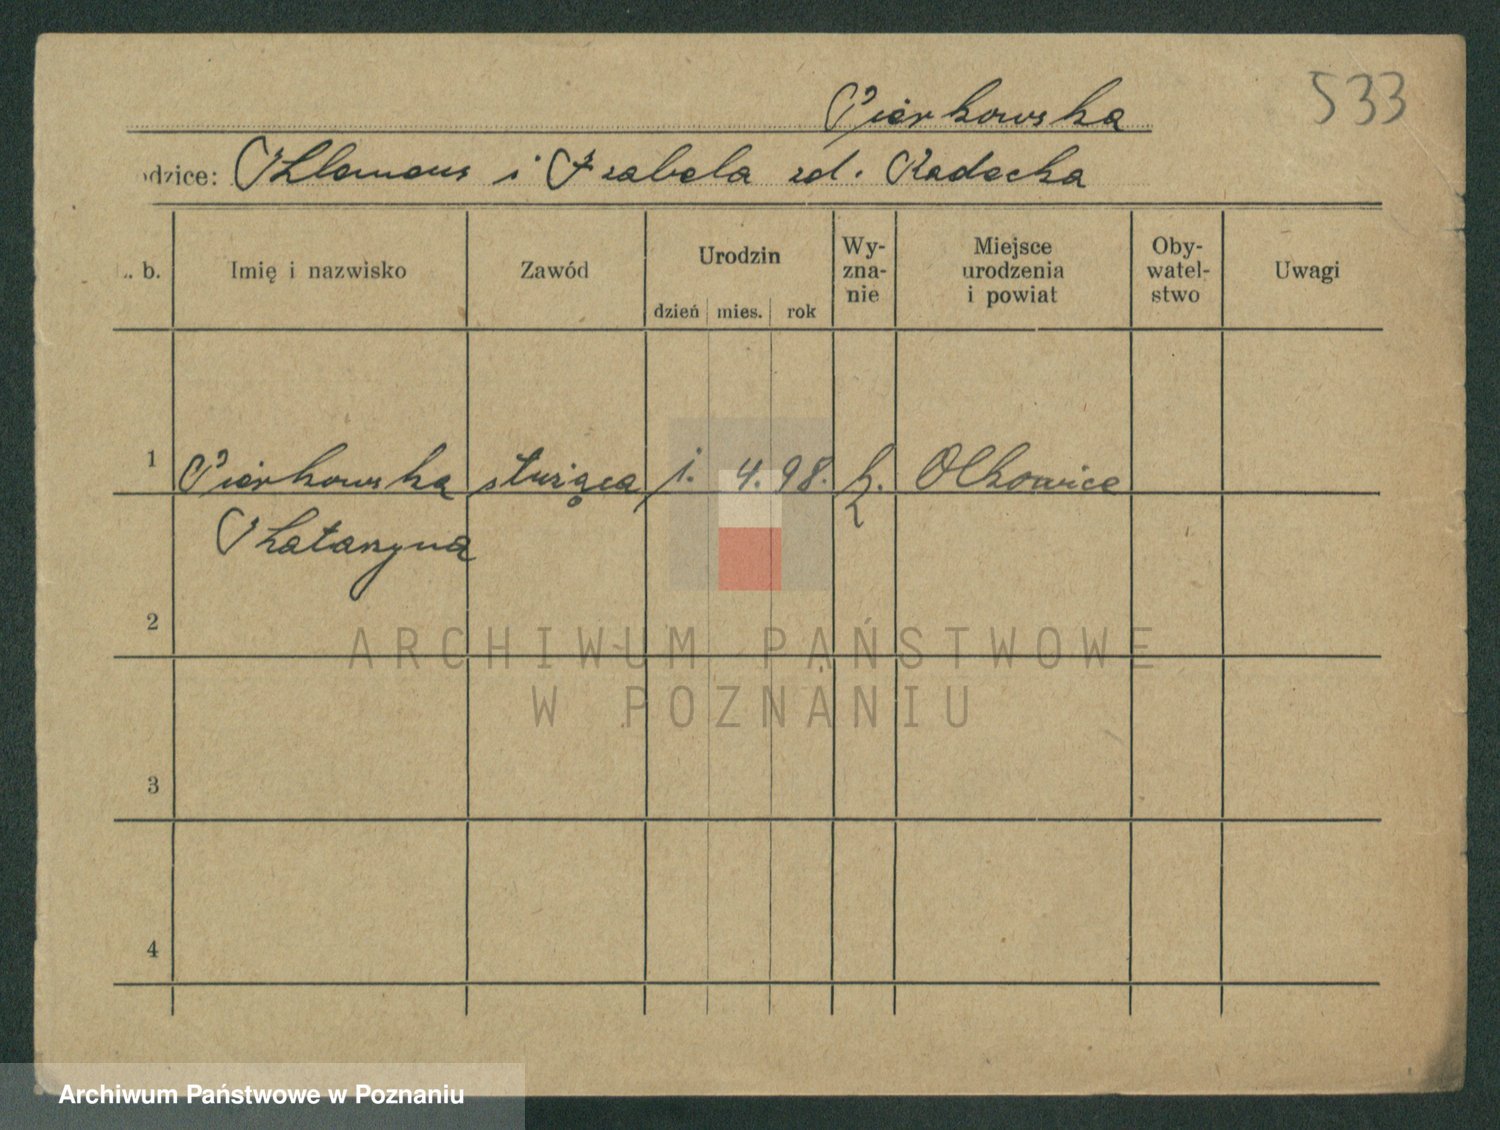 Pierkowska 533
odzice: Klemens i Izabela zd. Radecka
. b. Imię i nazwisko Zawód Urodzin dzień mies. rok Wy-zna-nie Miejsce urodzenia i powiat Oby-watel-stwo Uwagi
1 Pierkowska służąca 1. 4. 98. k. Olkowice
Katarzyna
2
3
4
ARCHIWUM PAŃSTWOWE
W POZNANIU
Archiwum Państwowe w Poznaniu